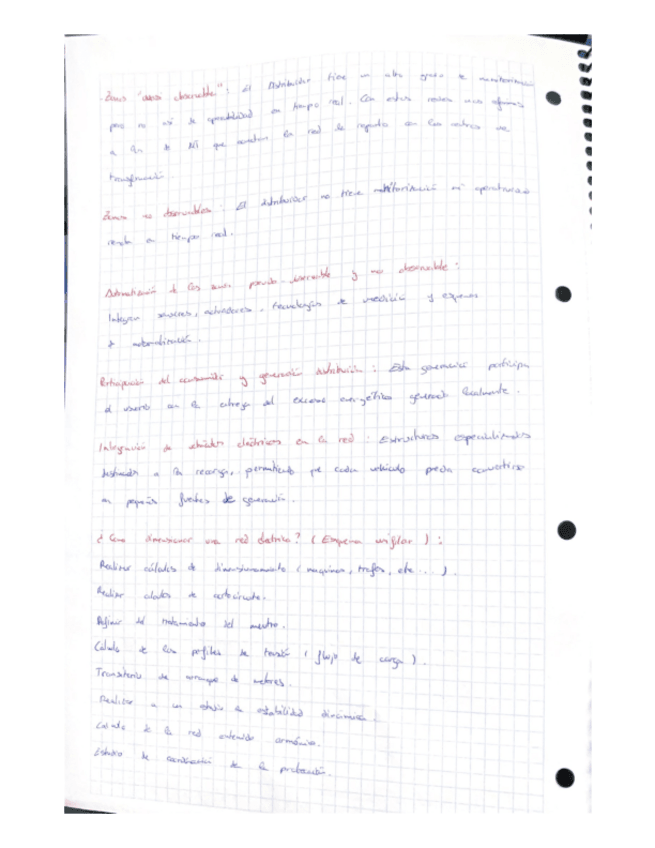 Zonas "semi observable": El Distribuidor tiene un alto grado de monitorización
pero no así de operatividad en tiempo real. Con estos redes
a de MT que la red de reparto en los centros de
transformación.
Zonas no observables: El distribuidor no tiene monitorización ni operatividad
remota en tiempo real.
Automatización de las zonas pseudo-observable y no observable:
Integran sensores, actuadores, tecnologías de medición y esquemas
de automatización.
Participación del consumidor y generación distribuida: Esta generación participa
al usuario en la entrega del exceso energético generado localmente.
Integración de vehículos eléctricos en la red: Estructuras especializadas
destinadas a la recarga, permitiendo que cada vehículo pueda convertirse
en pequeñas fuentes de generación.
¿Como dimensionar una red eléctrica? (Esquema unifilar):
Realizar cálculos de dimensionamiento (maquinas, trafos, etc...).
Realizar cálculos de cortocircuito.
Definir del tratamiento del neutro.
Calculo de los perfiles de tensión (flujo de carga).
Transitorio de arranque de motores.
Realizar a un estudio de estabilidad dinámica.
Calculo de la red contenido armónico.
Estudio de coordinación de la protección.